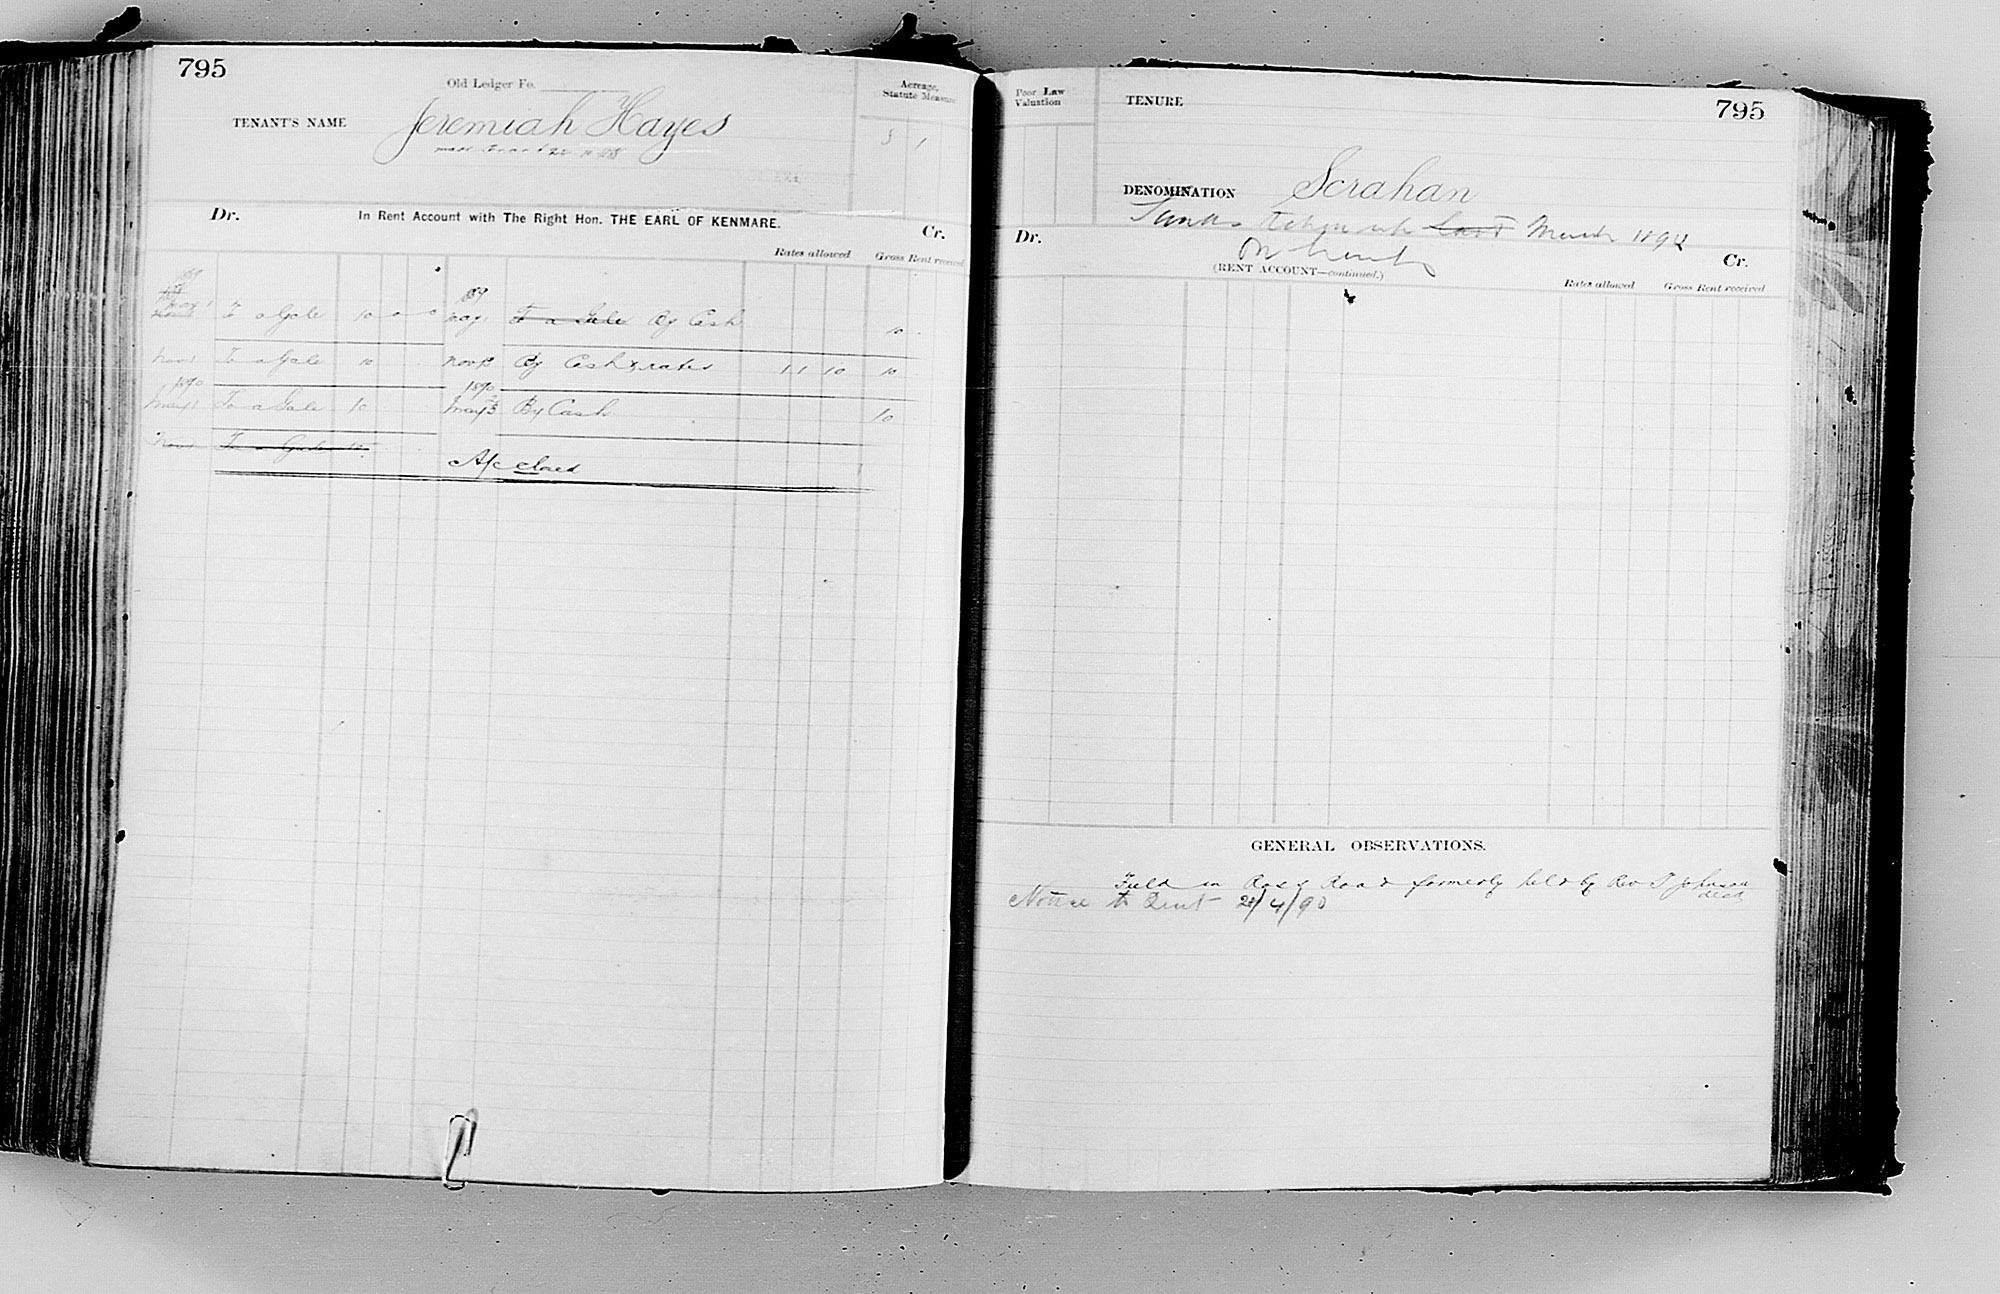 795
Old Ledger Fo.
Acreage,
Statute Measure
TENANT'S NAME Jeremiah Hayes
3 1
Dr. In Rent Account with The Right Hon. THE EARL OF KENMARE. Cr.
Rates allowed Gross Rent received
1889
May 1 To a Gale 10 - 0 May To a Gale By Cash 10
Nov 1 To a Gale 10 Nov By Cash & rates 11 10 10
1890 1890
May 1 To a Gale 10 May By Cash 10
Nov 1 To a Gale 10
A/c closed
Poor Law
Valuation
TENURE
795
DENOMINATION Scrahan
taken up last March 1894
Dr. Cr.
(RENT ACCOUNT—continued.)
Rates allowed Gross Rent received
GENERAL OBSERVATIONS.
Field on Ross Road formerly held by Rev T Johnson
decd
Notice to Quit 21/4/90